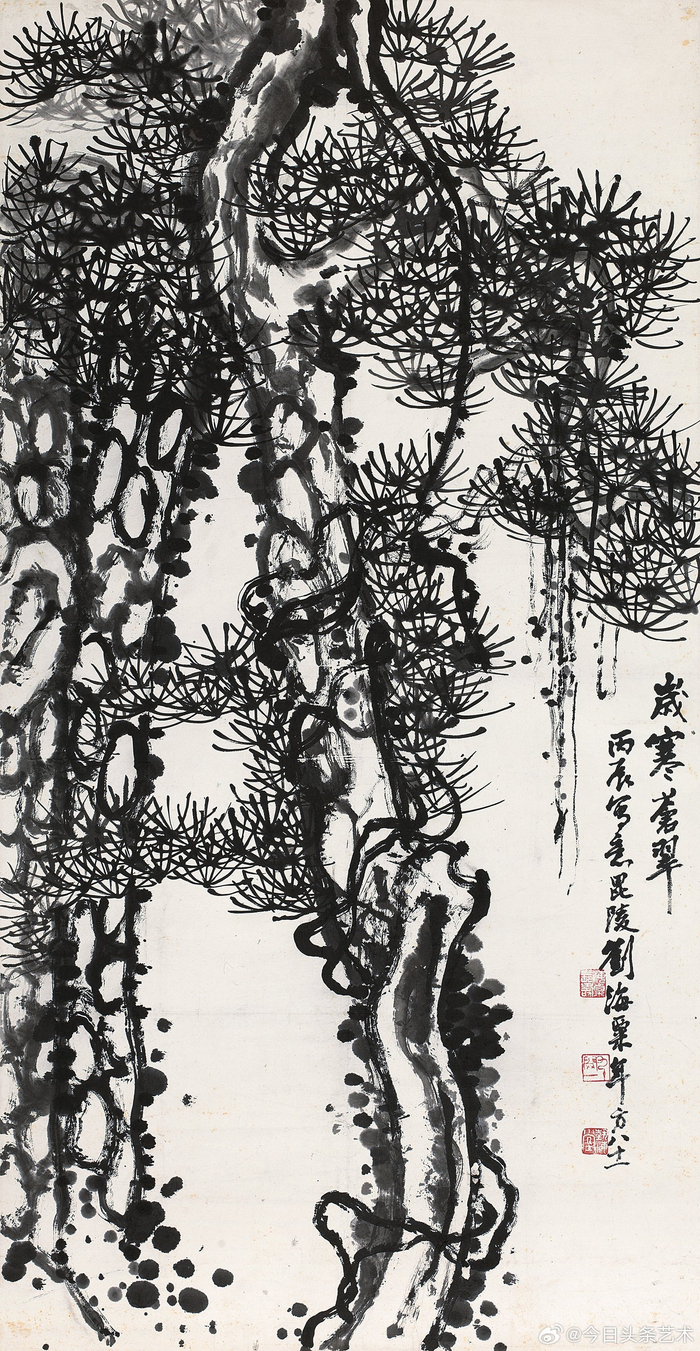 歲寒蒼翠
丙辰写意毘陵劉海粟年方八十一
@今日头条艺术